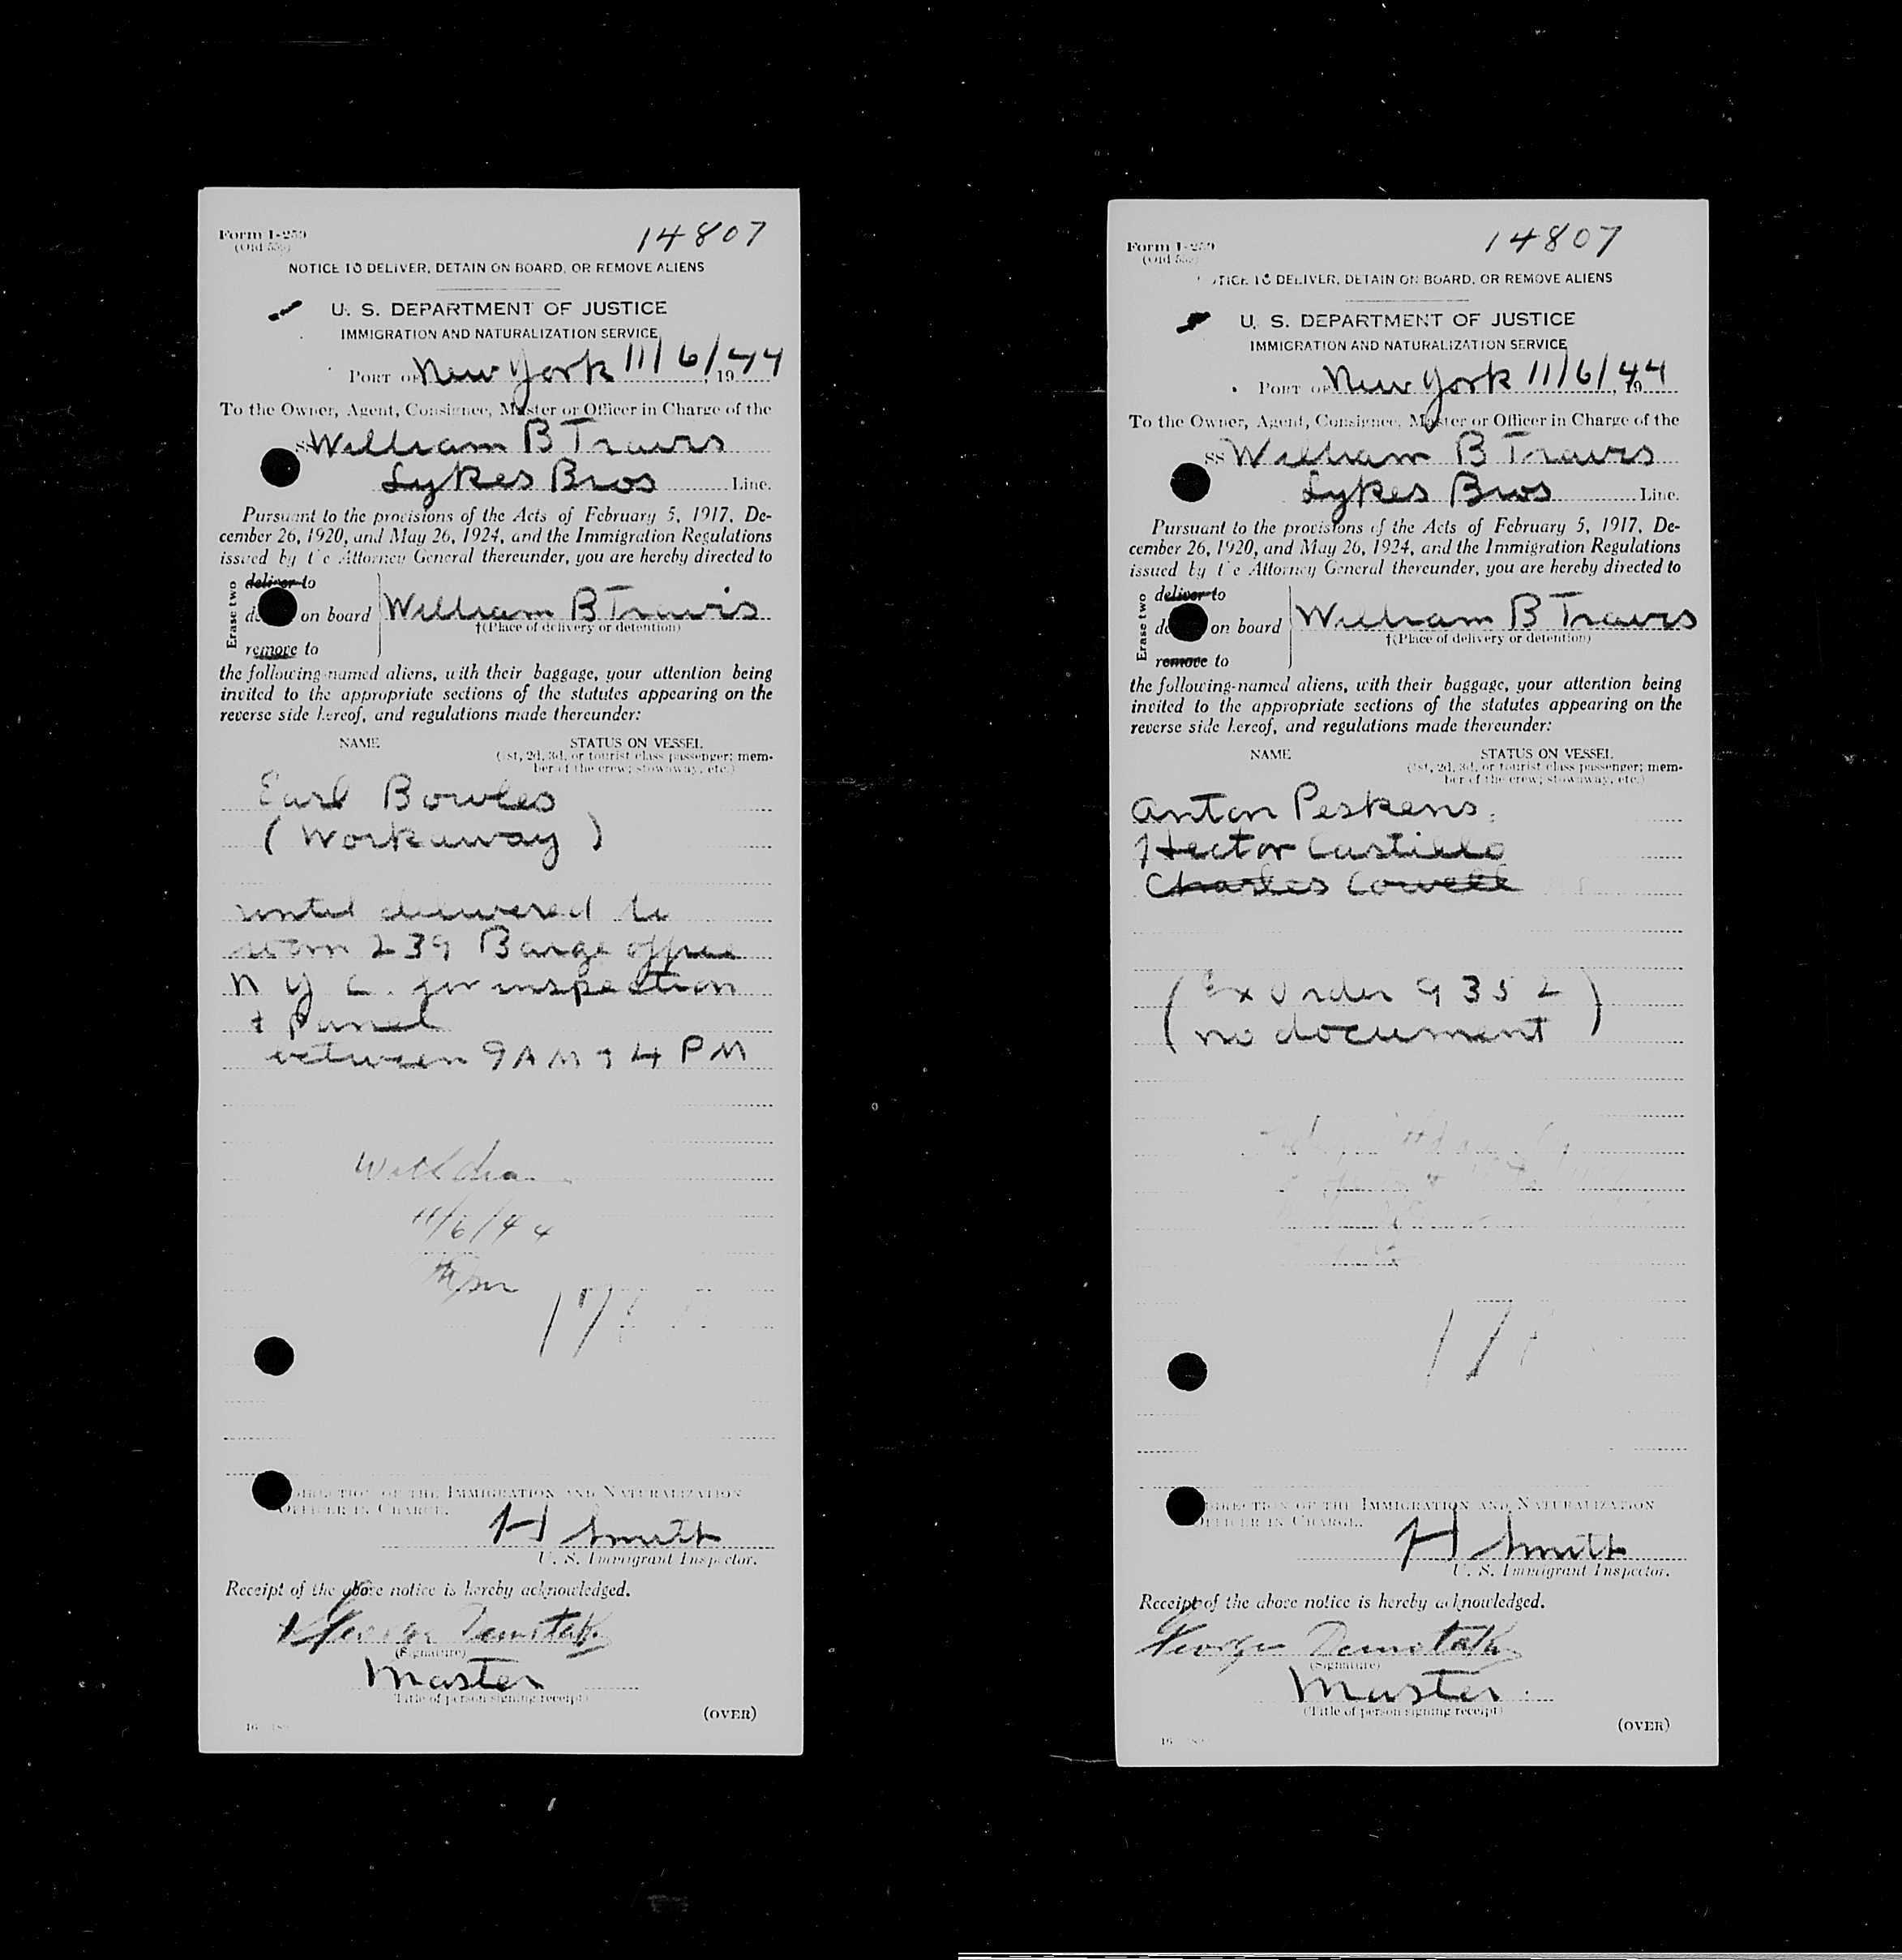 Form I-259
(Old 539)
14807
NOTICE TO DELIVER, DETAIN ON BOARD, OR REMOVE ALIENS
U. S. DEPARTMENT OF JUSTICE
IMMIGRATION AND NATURALIZATION SERVICE
PORT OF New York 11/6/, 1944
To the Owner, Agent, Consignee, Master or Officer in Charge of the
SS William B Travis
Lykes Bros Line.
Pursuant to the provisions of the Acts of February 5, 1917, De-
cember 26, 1920, and May 26, 1924, and the Immigration Regulations
issued by the Attorney General thereunder, you are hereby directed to
Erase two
deliver to
on board William B Travis
†(Place of delivery or detention)
remove to
the following-named aliens, with their baggage, your attention being
invited to the appropriate sections of the statutes appearing on the
reverse side hereof, and regulations made thereunder:
NAME STATUS ON VESSEL
(1st, 2d, 3d, or tourist class passenger; mem-
ber of the crew; stowaway, etc.)
Earl Bowles
(Workaway)
until delivered to
room 239 Barge office
N Y C. for inspection
+ panel
between 9 AM + 4 PM
11/6/44
DIRECTION OF THE IMMIGRATION AND NATURALIZATION
OFFICER IN CHARGE.
H Smith
U. S. Immigrant Inspector.
Receipt of the above notice is hereby acknowledged.
George
(Signature)
Master
(Title of person signing receipt)
(OVER)
Form I-259
(Old 539)
14807
NOTICE TO DELIVER, DETAIN ON BOARD, OR REMOVE ALIENS
U. S. DEPARTMENT OF JUSTICE
IMMIGRATION AND NATURALIZATION SERVICE
PORT OF New York 11/6/, 1944
To the Owner, Agent, Consignee, Master or Officer in Charge of the
SS William B Travis
Lykes Bros Line.
Pursuant to the provisions of the Acts of February 5, 1917, De-
cember 26, 1920, and May 26, 1924, and the Immigration Regulations
issued by the Attorney General thereunder, you are hereby directed to
Erase two
deliver to
on board William B Travis
†(Place of delivery or detention)
remove to
the following-named aliens, with their baggage, your attention being
invited to the appropriate sections of the statutes appearing on the
reverse side hereof, and regulations made thereunder:
NAME STATUS ON VESSEL
(1st, 2d, 3d, or tourist class passenger; mem-
ber of the crew; stowaway, etc.)
Anton Peskens.
Hector Castillo
Charles Corvell
(Ex Order 9352)
(no document)
DIRECTION OF THE IMMIGRATION AND NATURALIZATION
OFFICER IN CHARGE.
H Smith
U. S. Immigrant Inspector.
Receipt of the above notice is hereby acknowledged.
George
(Signature)
Master.
(Title of person signing receipt)
(OVER)